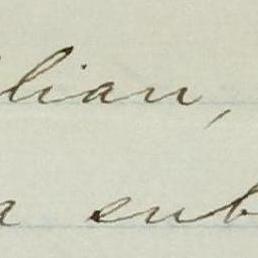 lian,
a sub